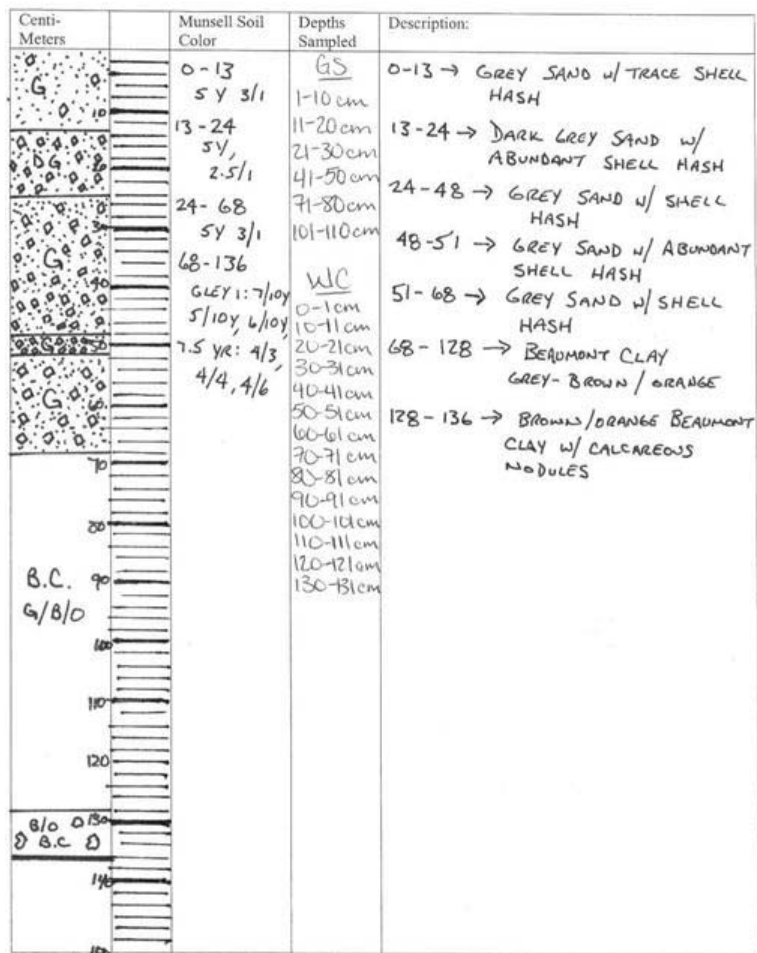 Centi-
Meters
Munsell Soil
Color
Depths
Sampled
Description:
G
10
DG
20
30
G
40
G
50
G
60
70
80
B.C.
90
G/B/O
100
110
120
B/O
130
B.C
140
150
0-13
5 Y 3/1
13-24
5Y,
2.5/1
24-68
5Y 3/1
68-136
GLEY 1: 7/10Y
5/10Y, 6/10Y,
7.5 YR: 4/3,
4/4, 4/6
GS
1-10cm
11-20cm
21-30cm
41-50cm
71-80cm
101-110cm
WC
0-1cm
10-11cm
20-21cm
30-31cm
40-41cm
50-51cm
60-61cm
70-71cm
80-81cm
90-91cm
100-101cm
110-111cm
120-121cm
130-131cm
0-13 → GREY SAND W/ TRACE SHELL
HASH
13-24 → DARK GREY SAND W/
ABUNDANT SHELL HASH
24-48 → GREY SAND W/ SHELL
HASH
48-51 → GREY SAND W/ ABUNDANT
SHELL HASH
51-68 → GREY SAND W/ SHELL
HASH
68-128 → BEAUMONT CLAY
GREY-BROWN/ORANGE
128-136 → BROWN/ORANGE BEAUMONT
CLAY W/ CALCAREOUS
NODULES